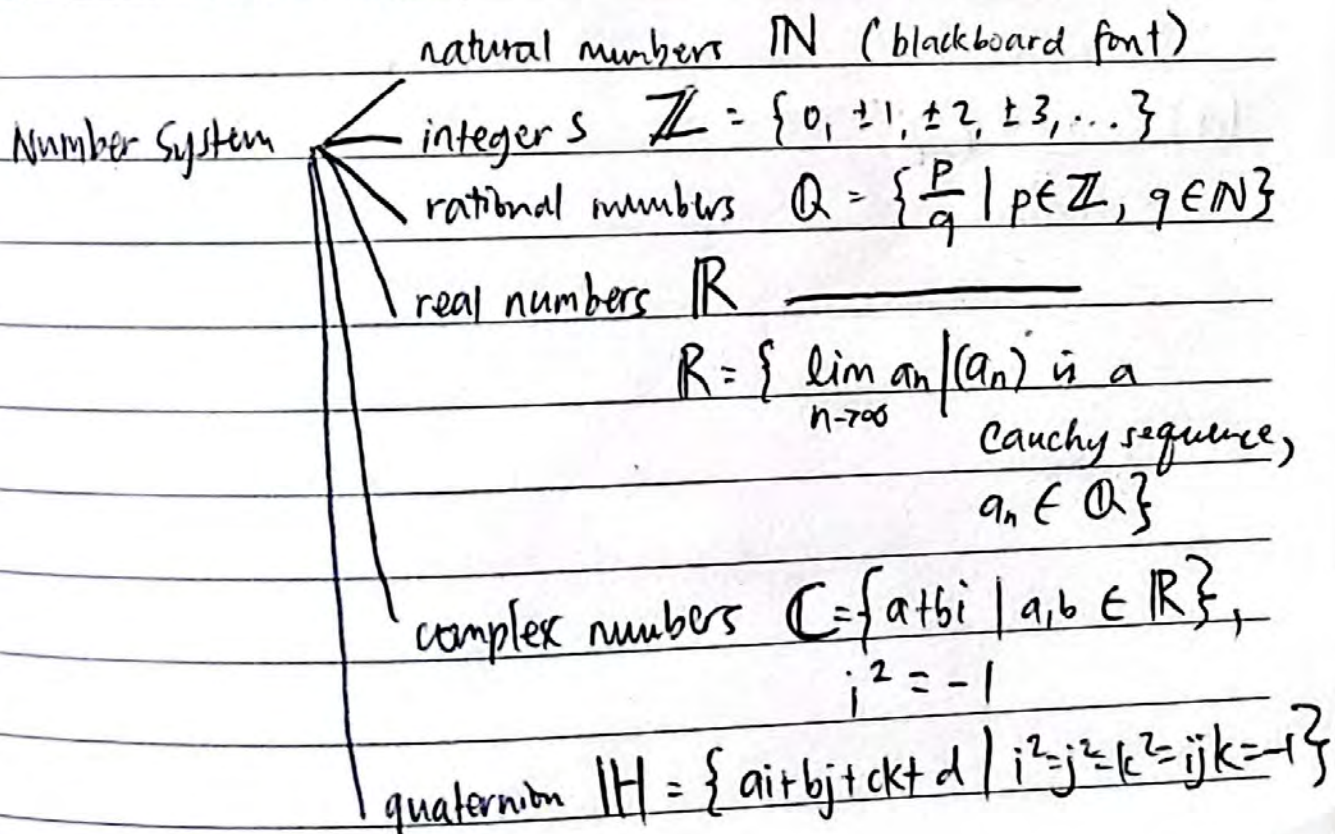 natural numbers ℕ (blackboard font)
Number System
integers ℤ = {0, ±1, ±2, ±3, ...}
rational numbers ℚ = {p/q | p∈ℤ, q∈ℕ}
real numbers ℝ
ℝ = { lim n→∞ an | (an) is a
Cauchy sequence,
an ∈ ℚ}
complex numbers ℂ={a+bi | a,b ∈ ℝ},
i² = -1
quaternion ℍ = { ai+bj+ck+d | i²=j²=k²=ijk=-1}